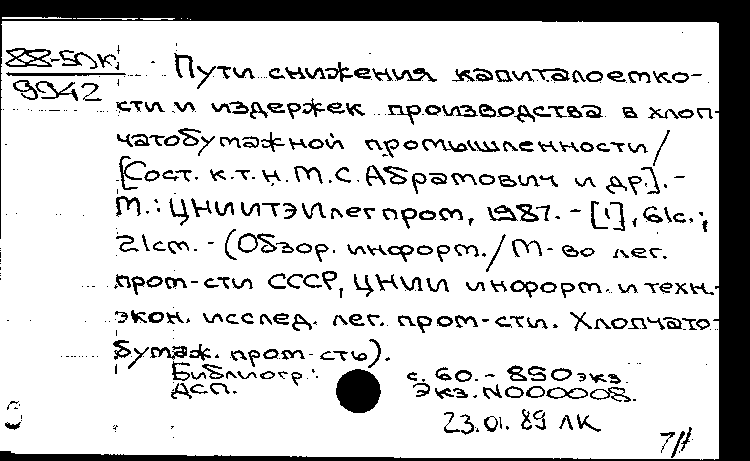 88-5ДК
9942
Пути снижения капиталоемко-
сти и издержек производства в хлоп-
чатобумажной промышленности /
[Сост. к.т.н. М.С. Абрамович и др.]. -
М.: ЦНИИТЭИлегпром, 1987. - [1], 61с.;
21см. - (Обзор. информ. / М-во лег.
пром-сти СССР, ЦНИИ информ. и техн.-
экон. исслед. лег. пром-сти. Хлопчато-
бумаж. пром-сть).
Библиогр.: с. 60. - 850экз.
ДСП. Экз. N000008.
23.01.89 ЛК